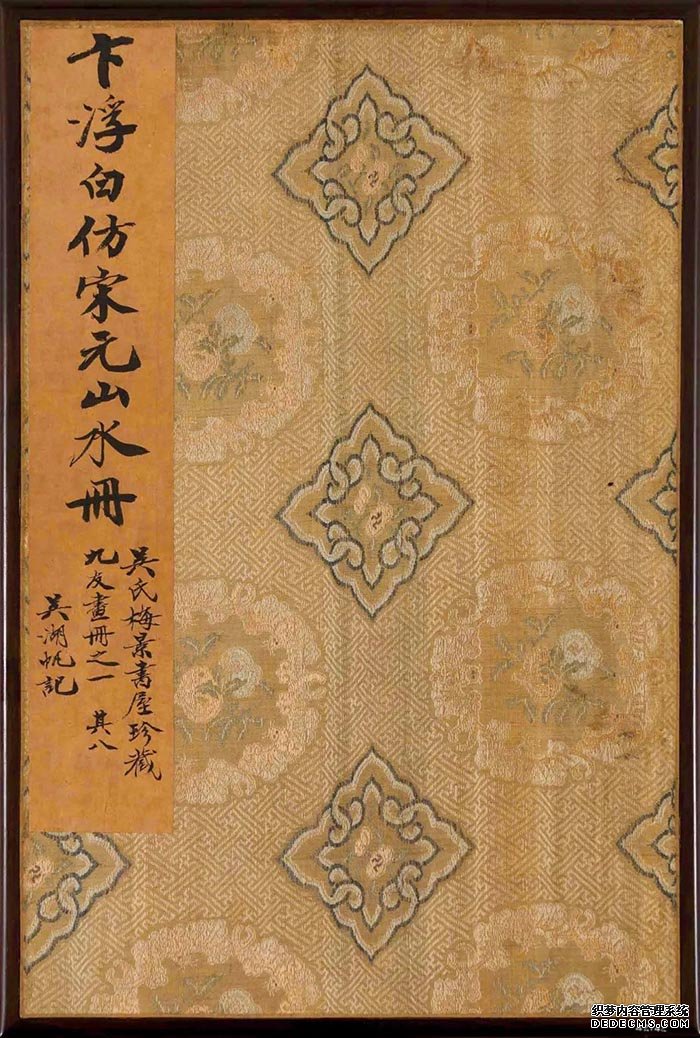 卞浮白仿宋元山水冊
吳氏梅景書屋珍藏
九友畫冊之一 其八
吳湖帆記
织梦内容管理系统
DEDECMS.COM